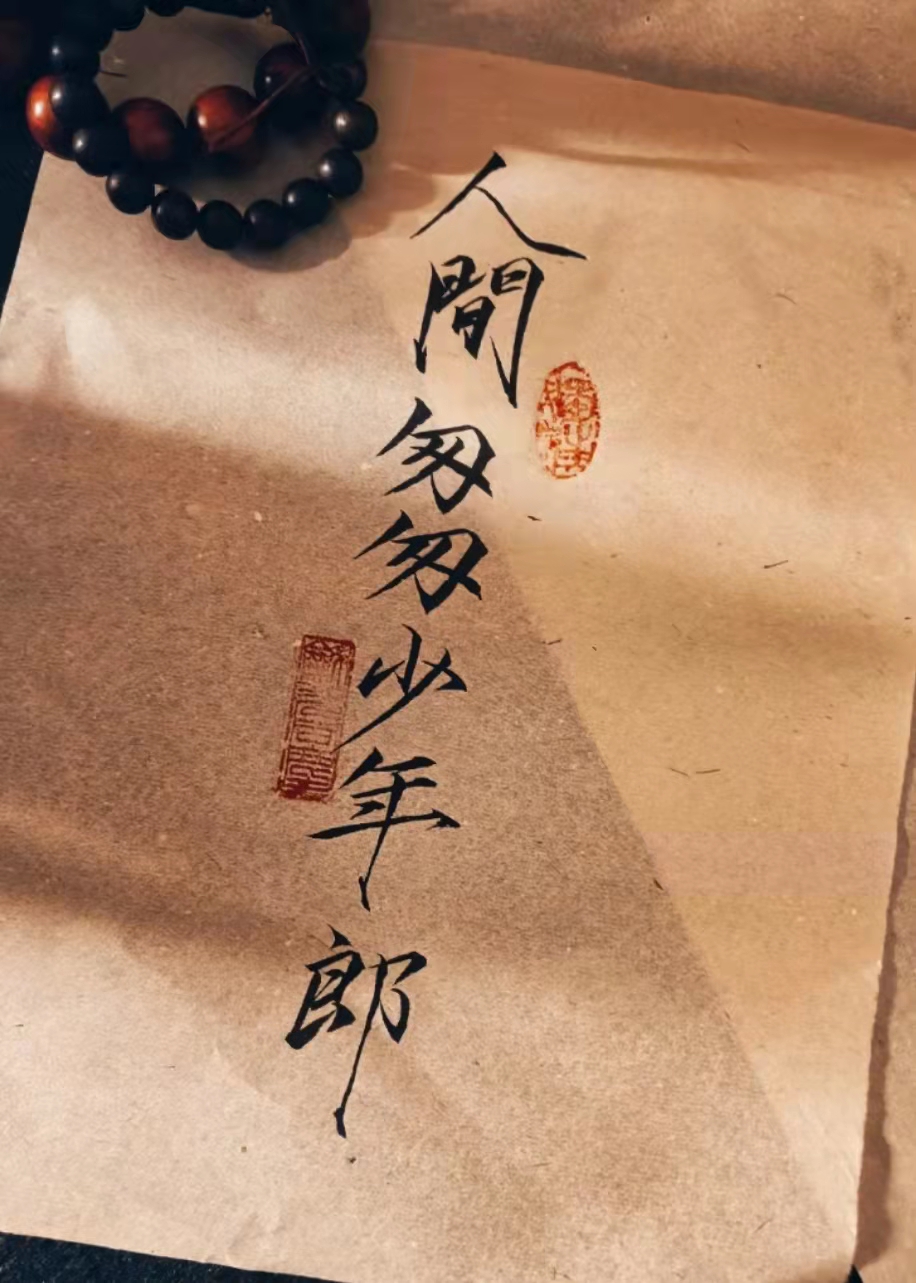 人間匆匆少年郎